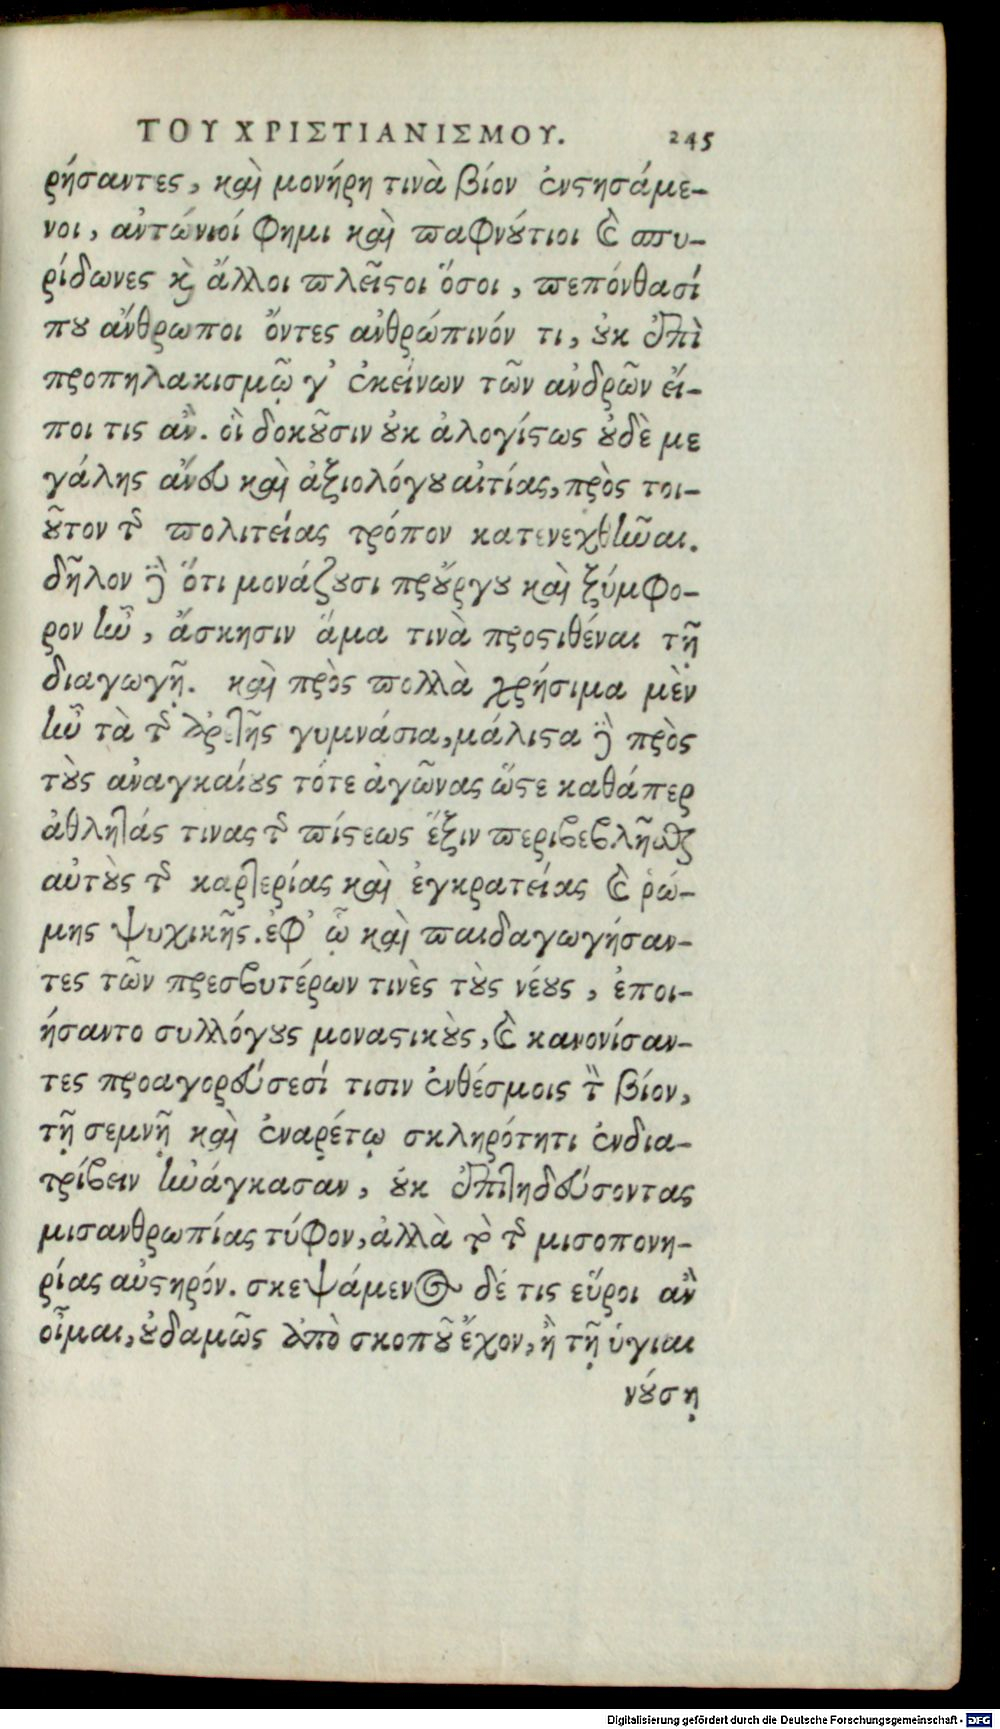 ΤΟΥ ΧΡΙΣΤΙΑΝΙΣΜΟΥ. 245
ρήσαντες, καὶ μονήρη τινὰ βίον ἐνστησάμε-
νοι, αντώνιοί φημι καὶ παφνούτιοι καὶ σπυ-
ρίδωνες καὶ ἄλλοι πλεῖστοι ὅσοι, πεπόνθασί
που ἄνθρωποι ὄντες ἀνθρώπινόν τι, οὐκ ἐπὶ
προπηλακισμῷ γ' ἐκείνων τῶν ανδρῶν ἔι-
ποι τις ἂν. οἳ δοκοῦσιν οὐκ ἀλογίστως οὐδὲ με
γάλης άνευ καὶ ἀξιολόγου αιτίας, πρὸς τοι-
οῦτον τῆς πολιτείας τρόπον κατενεχθῆναι.
δῆλον δὲ ὅτι μονάζουσι προὔργου καὶ ξύμφο-
ρον ἦν, ἄσκησιν ἅμα τινὰ προστιθέναι τῇ
διαγωγῇ. καὶ πρὸς πολλὰ χρήσιμα μὲν
ἦν τὰ τῆς ἀρετῆς γυμνάσια, μάλιστα δὲ πρὸς
τοὺς αναγκαίους τότε ἀγῶνας ὥστε καθάπερ
ἀθλητάς τινας τῆς πίστεως ἕξιν περιβεβλῆσθαι
αὐτοὺς τῆς καρτερίας καὶ ἐγκρατείας καὶ ῥώ-
μης ψυχικῆς. ἐφ' ᾧ καὶ παιδαγωγήσαν-
τες τῶν πρεσβυτέρων τινὲς τοὺς νέους, ἐποι-
ήσαντο συλλόγους μοναστικοὺς, καὶ κανονίσαν-
τες προαγορεύσεσί τισιν ἐνθέσμοις τὸν βίον,
τῇ σεμνῇ καὶ ἐναρέτῳ σκληρότητι ἐνδια-
τρίβειν ἠνάγκασαν, οὐκ ἐπιτηδεύσοντας
μισανθρωπίας τύφον, ἀλλὰ τὸ τῆς μισοπονη-
ρίας αὐστηρόν. σκεψάμενος δέ τις εὕροι ἂν
οἶμαι, οὐδαμῶς ἀπὸ σκοποῦ ἔχον, ἢ τῇ ὑγιαι
νούσῃ
Digitalisierung gefördert durch die Deutsche Forschungsgemeinschaft - DFG